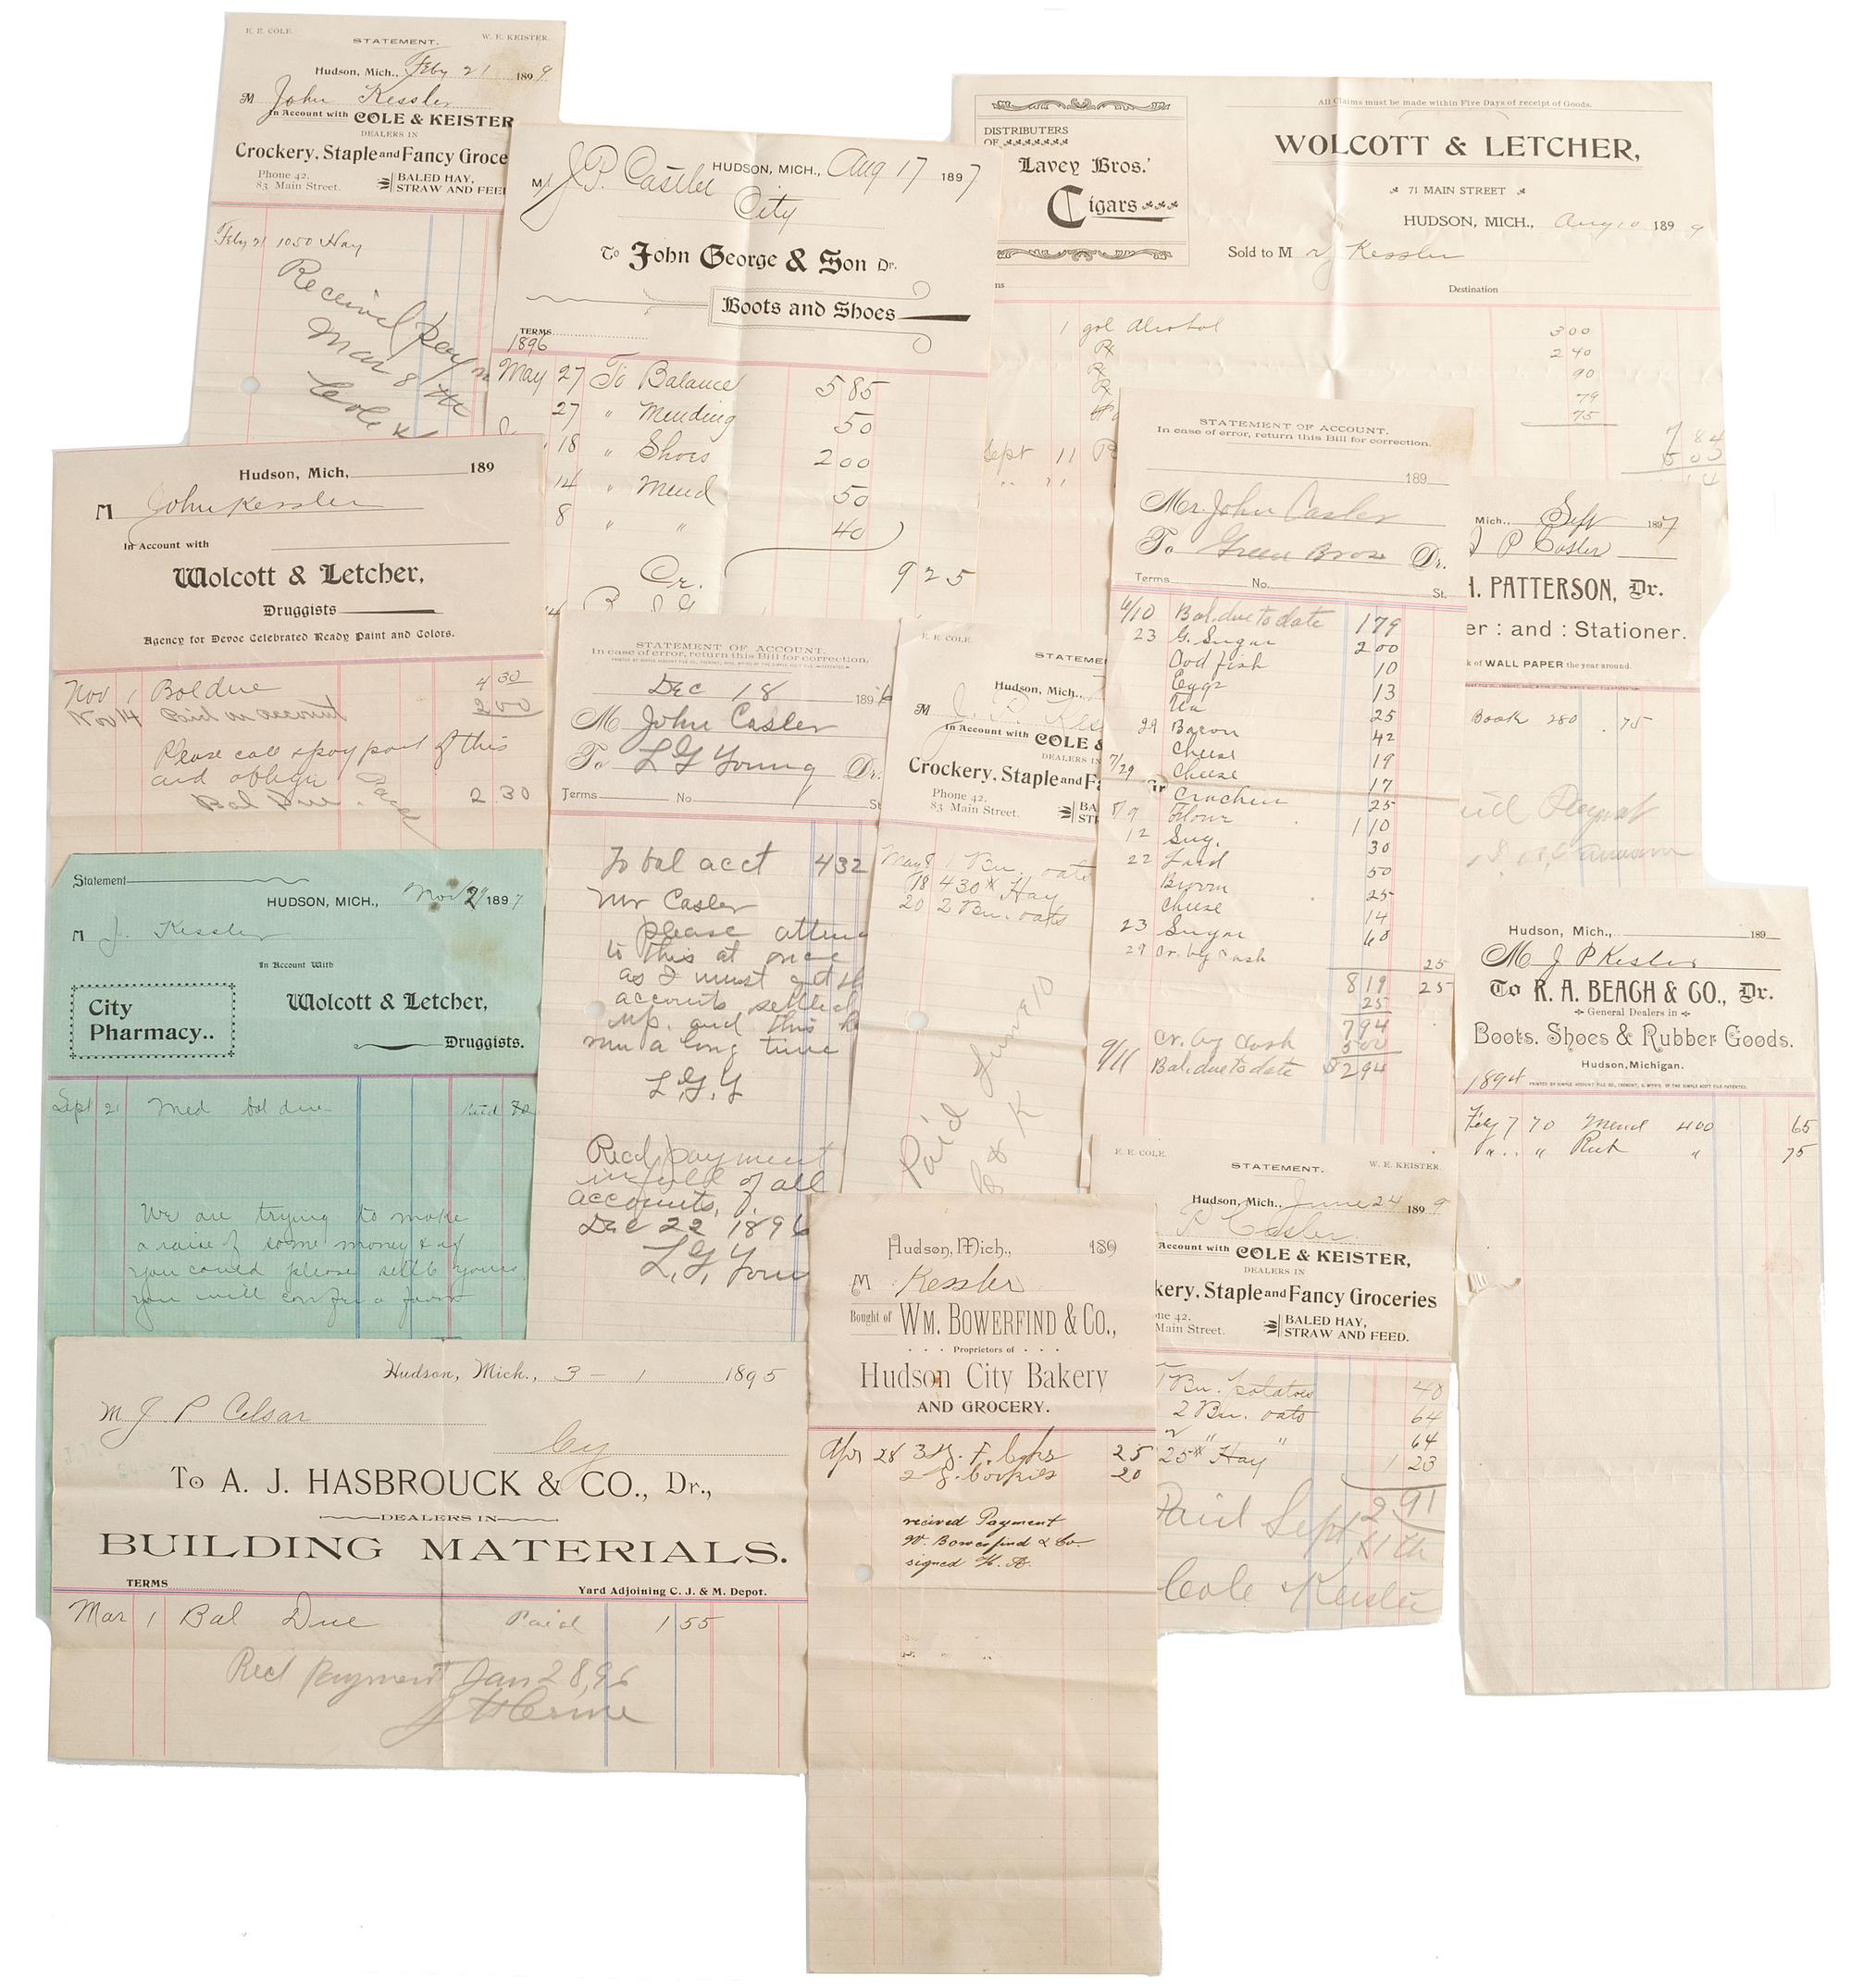 E. E. COLE.
W. E. KEISTER.
STATEMENT.
Hudson, Mich., Feby 21 1899
M John Kessler
In Account with COLE & KEISTER
DEALERS IN
Crockery, Staple and Fancy Groce
Phone 42.
83 Main Street.
BALED HAY,
STRAW AND FEE
Feby 21 1050 Hay
Received paym
Mar 8th
Cole K
HUDSON, MICH., Aug 17 1897
M J. P. Castler
City
To John George & Son Dr.
Boots and Shoes
TERMS
1896
May 27 To Balance 5 85
27 " Mending 50
18 " Shoes 2 00
14 " Mend 50
8 " " 40
9 25
Cr.
DISTRIBUTERS
OF
Lavey Bros.'
Cigars
All Claims must be made within Five Days of receipt of Goods.
WOLCOTT & LETCHER,
71 MAIN STREET
HUDSON, MICH., Aug 10 1899
Sold to M J Kessler
Destination
1 gal Alcohol 3 00
Rx 2 40
Rx 90
Rx 79
75
7 84
Sept 11
Hudson, Mich, 189
M John Kessler
In Account with
Wolcott & Letcher,
Druggists
Agency for Devoe Celebrated Ready Paint and Colors.
Nov 1 Bal due 4 30
Nov 14 Paid on account 2 00
Please call & pay part of this
and oblige
Bal Due. 2.30
STATEMENT OF ACCOUNT.
In case of error, return this Bill for correction.
Dec 18 1896
M John Casler
To L G Young Dr.
Terms No. St
To bal acct 4 32
Mr Casler
please atten
to this at once
as I must get th
accounts settled
up. and this h
run a long time
L, G, Y
Recd payment
in full of all
accounts,
Dec 22 1896
L, G, Youn
E. E. COLE.
STATEME
Hudson, Mich.,
M J. P. Kes
In Account with COLE &
DEALERS IN
Crockery, Staple and Fa
Phone 42.
83 Main Street.
BA
ST
May 8 1 Bu. oats
18 430# Hay
20 2 Bu. oats
Paid June 10
C & K
STATEMENT OF ACCOUNT.
In case of error, return this Bill for correction.
189
Mr. John Casler
To Green Bros Dr.
Terms No. St.
6/10 Bal. due to date 1 79
23 G. Sugar 2 00
Cod fish 10
Eggs 13
Tea 25
29 Bacon 42
Cheese 19
7/29 Cheese 17
Crackers 25
8/9 Flour 1 10
12 Sug. 30
22 Lard 50
Broom 25
Cheese 14
23 Sugar 60
29 Cr. by Cash 25
8 19 25
25
7 94
9/11 Cr. by Cash 5 00
Bal. due to date $2 94
Mich., Sept 1897
J P Casler
H. PATTERSON, Dr.
er : and : Stationer.
k of WALL PAPER the year around.
Book 280 .75
Statement
HUDSON, MICH., Nov 29 1897
M J. Kessler
In Account With
City
Pharmacy..
Wolcott & Letcher,
Druggists.
Sept 21 Med bal due
We are trying to make
a raise of some money & if
you could please settle yours
you will confer a favor
Hudson, Mich., 189
M J P Kesler
To R. A. BEACH & CO., Dr.
General Dealers in
Boots, Shoes & Rubber Goods.
Hudson, Michigan.
1894
Feby 7 70 Mend 400 65
" " 75
Hudson, Mich., 3 - 1 1895
M J P Celsar
Cy
To A. J. HASBROUCK & CO., Dr.,
DEALERS IN
BUILDING MATERIALS.
TERMS
Yard Adjoining C. J. & M. Depot.
Mar 1 Bal Due Paid 1 55
Recd Payment Jan 28, 96
Hudson, Mich., 189
M Kessler
Bought of WM. BOWERFIND & CO.,
Proprietors of
Hudson City Bakery
AND GROCERY.
Apr 28 3 25
2 cookies 20
recived Payment
W. Bowerfind & Co.
signed H. B.
E. E. COLE.
W. E. KEISTER.
STATEMENT.
Hudson, Mich., June 24 1899
P Casler
Account with COLE & KEISTER,
DEALERS IN
kery, Staple and Fancy Groceries
ne 42.
Main Street.
BALED HAY,
STRAW AND FEED.
1 Bu. potatoes 40
2 Bu. oats 64
2 " " 64
25# Hay 1 23
2.91
Paid Sept 11th
Cole & Keister